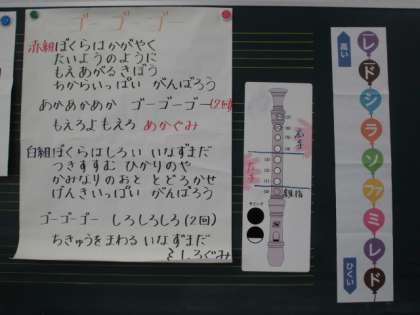 ゴーゴーゴー
赤組ぼくらはかがやく
たいようのように
もえあがるきぼう
ちからいっぱい がんばろう
あかあかあか ゴーゴーゴー(2回)
もえろよもえろ あかぐみ
白組ぼくらはしろい いなずまだ
つきすすむ ひかりのや
かみなりのおと とどろかせ
げんきいっぱい がんばろう
ゴーゴーゴー しろしろしろ(2回)
ちきゅうをまわる いなずまだ
しろぐみ
左手
親指
高い
レ
ド
シ
ラ
ソ
ファ
ミ
レ
ド
ひくい